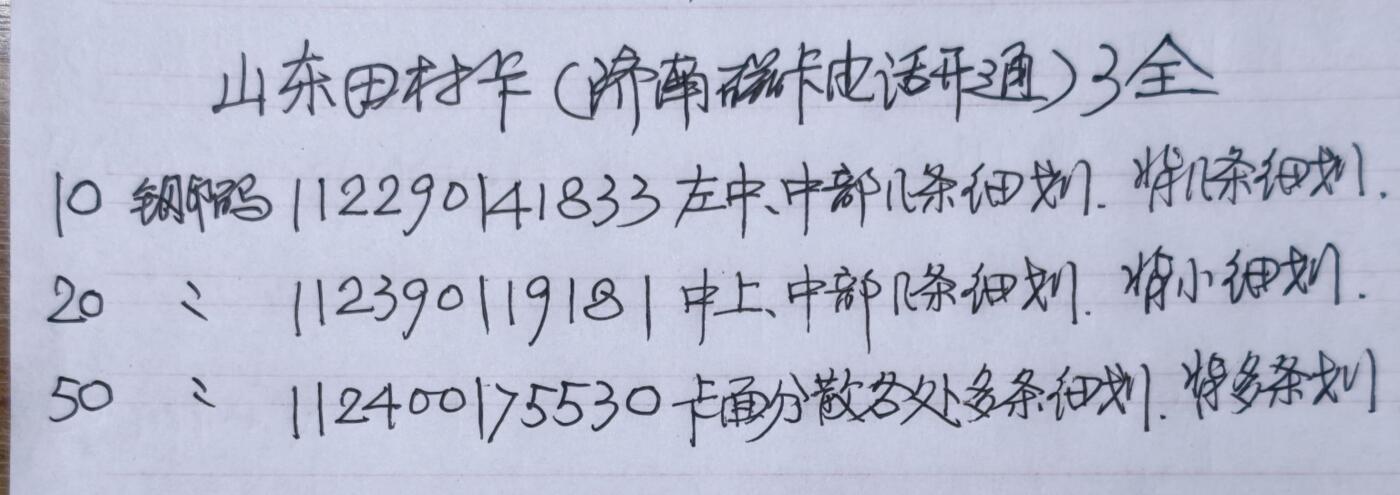 山东田村卡(济南磁卡电话开通)3全
10 钢印码 112290141833 左中、中部几条细划. 背几条细划.
20 〃 112390119181 中上、中部几条细划. 背小细划.
50 〃 112400175530 卡面分散各处多条细划. 背多条划